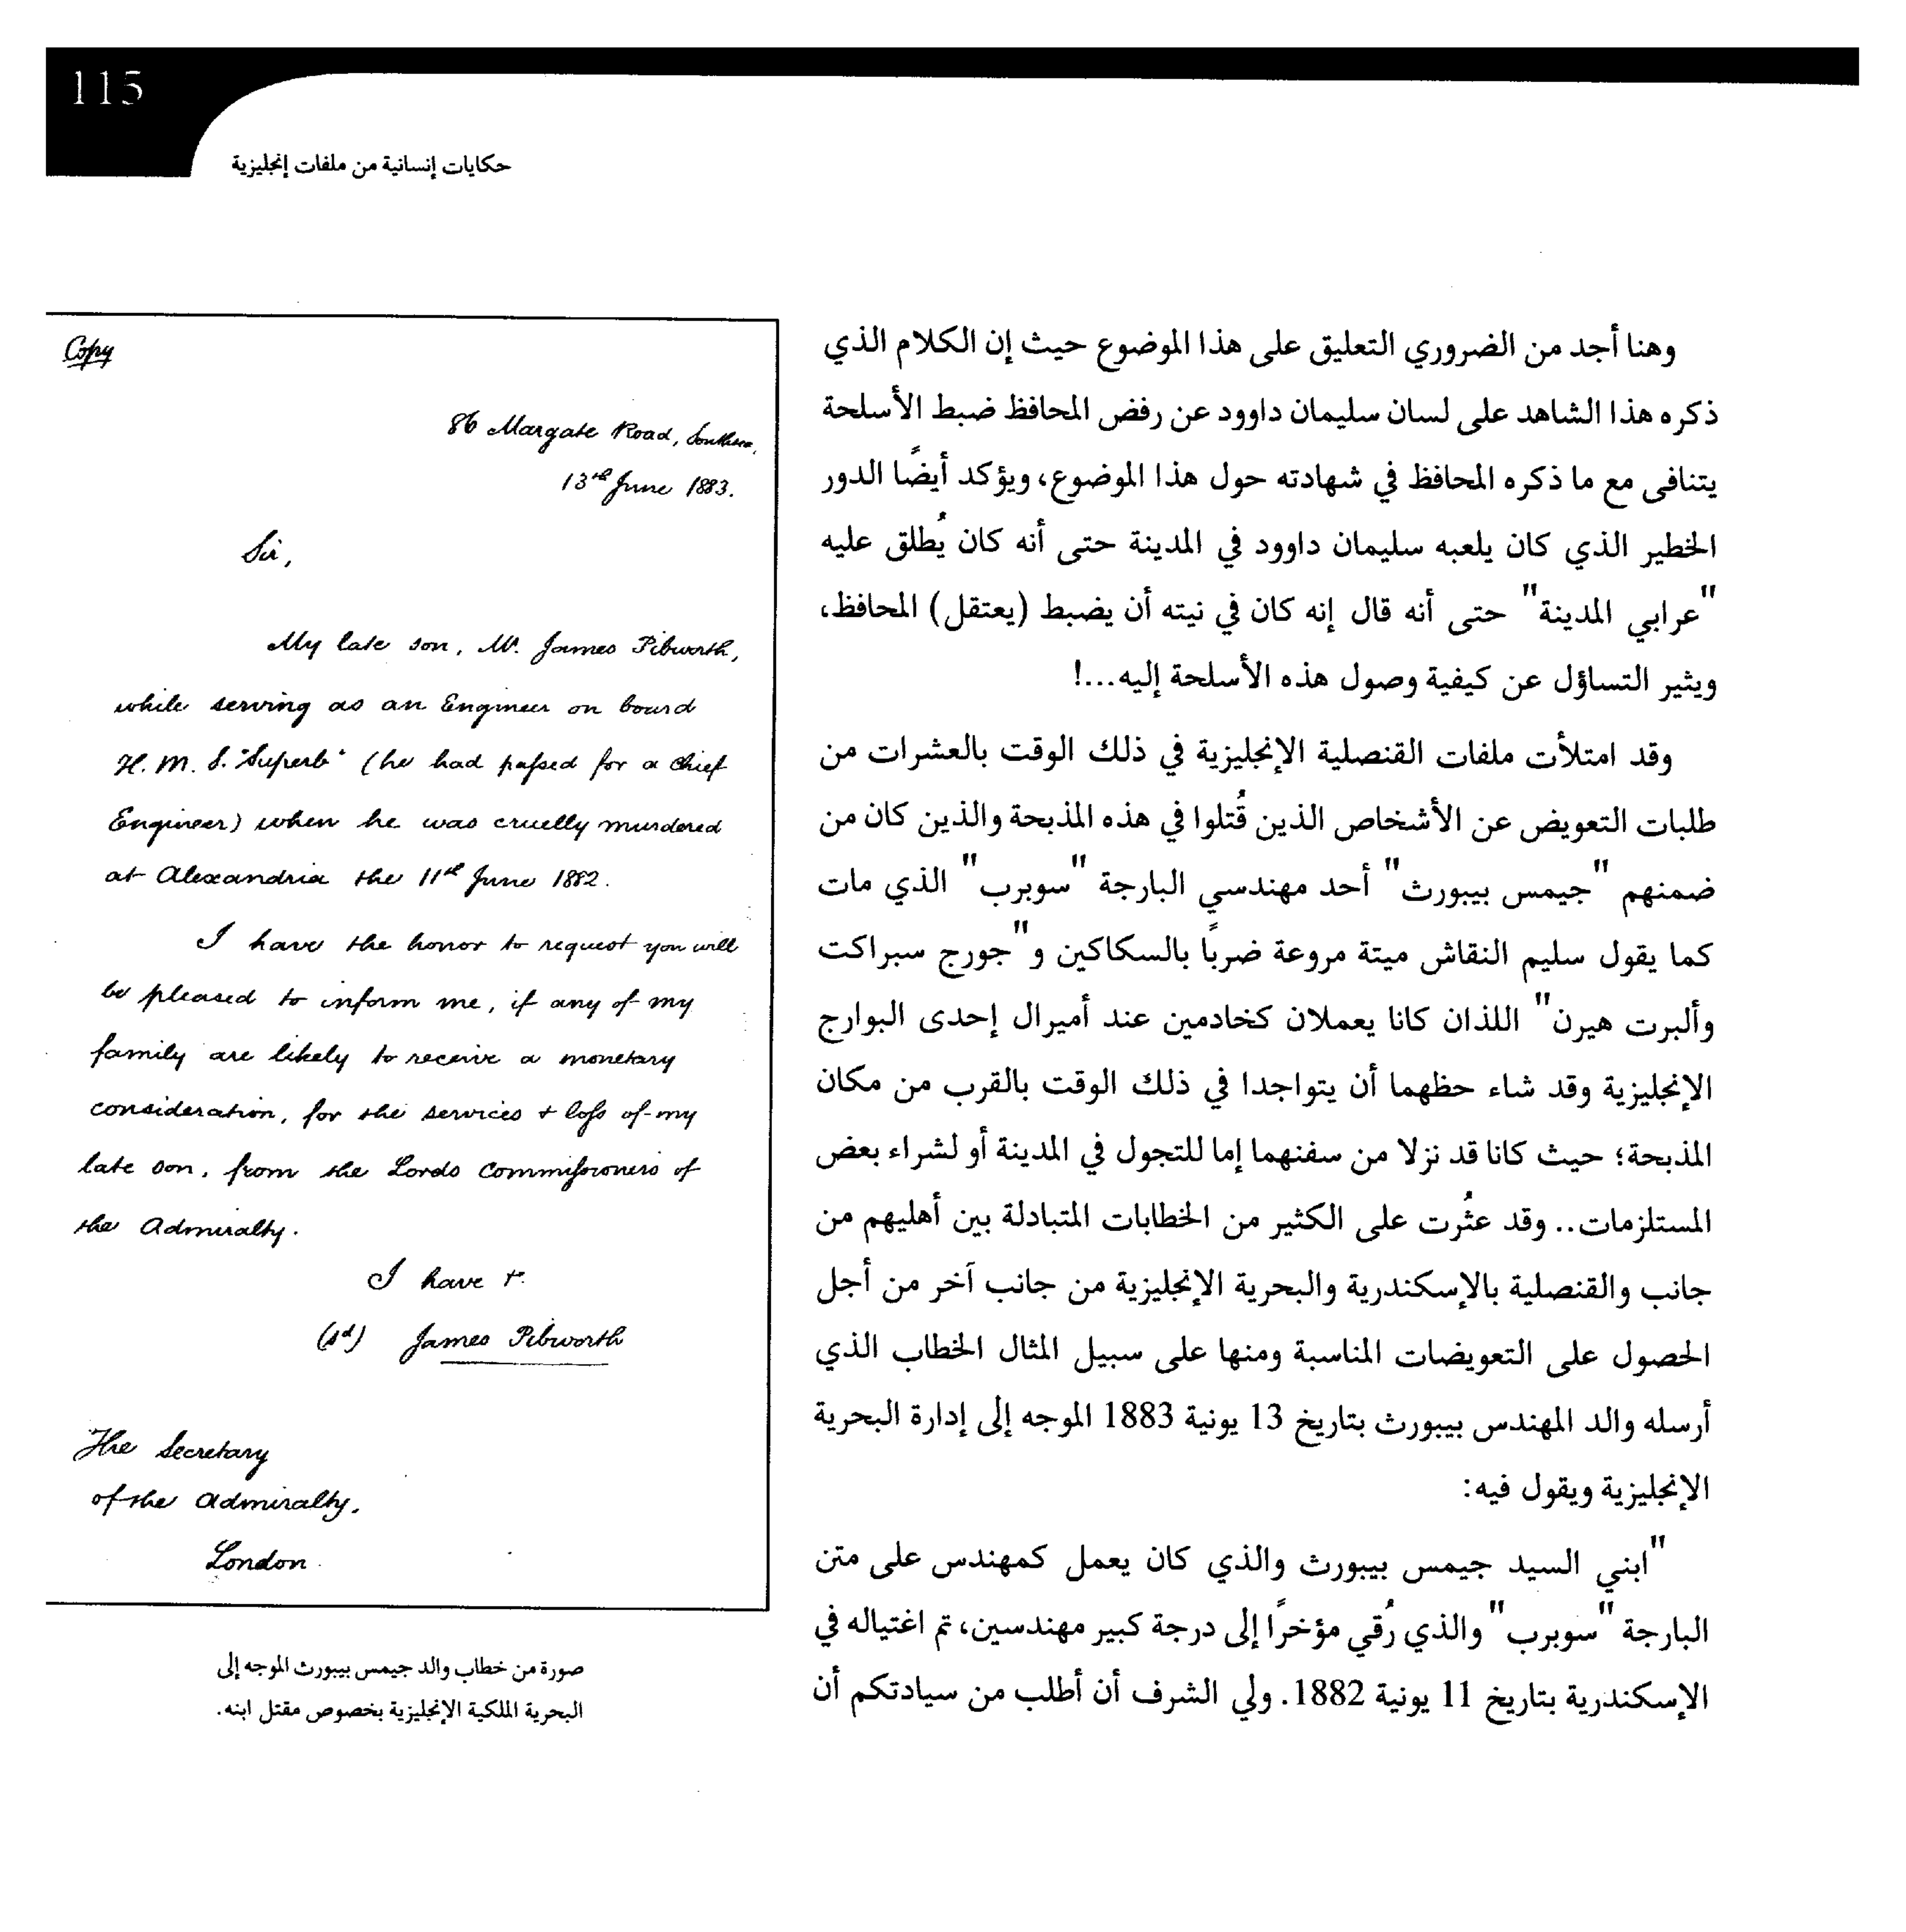 115
حكايات إنسانية من ملفات إنجليزية
وهنا أجد من الضروري التعليق على هذا الموضوع حيث إن الكلام الذي
ذكره هذا الشاهد على لسان سليمان داوود عن رفض المحافظ ضبط الأسلحة
يتنافى مع ما ذكره المحافظ في شهادته حول هذا الموضوع، ويؤكد أيضًا الدور
الخطير الذي كان يلعبه سليمان داوود في المدينة حتى أنه كان يُطلق عليه
"عرابي المدينة" حتى أنه قال إنه كان في نيته أن يضبط (يعتقل) المحافظ،
ويثير التساؤل عن كيفية وصول هذه الأسلحة إليه...!
وقد امتلأت ملفات القنصلية الإنجليزية في ذلك الوقت بالعشرات من
طلبات التعويض عن الأشخاص الذين قُتلوا في هذه المذبحة والذين كان من
ضمنهم "جيمس بيبورث" أحد مهندسي البارجة "سوبرب" الذي مات
كما يقول سليم النقاش ميتة مروعة ضربًا بالسكاكين و"جورج سبراكت
وألبرت هيرن" اللذان كانا يعملان كخادمين عند أميرال إحدى البوارج
الإنجليزية وقد شاء حظهما أن يتواجدا في ذلك الوقت بالقرب من مكان
المذبحة؛ حيث كانا قد نزلا من سفنهما إما للتجول في المدينة أو لشراء بعض
المستلزمات.. وقد عثُرت على الكثير من الخطابات المتبادلة بين أهليهم من
جانب والقنصلية بالإسكندرية والبحرية الإنجليزية من جانب آخر من أجل
الحصول على التعويضات المناسبة ومنها على سبيل المثال الخطاب الذي
أرسله والد المهندس بيبورث بتاريخ 13 يونية 1883 الموجه إلى إدارة البحرية
الإنجليزية ويقول فيه:
"ابني السيد جيمس بيبورث والذي كان يعمل كمهندس على متن
البارجة "سوبرب" والذي رُقي مؤخرًا إلى درجة كبير مهندسين، تم اغتياله في
الإسكندرية بتاريخ 11 يونية 1882. ولي الشرف أن أطلب من سيادتكم أن
Copy
86 Margate Road, Southsea,
13th June 1883.
Sir,
My late son, Mr. James Pibworth,
while serving as an Engineer on board
H.M.S. "Superb" (he had passed for a Chief
Engineer) when he was cruelly murdered
at Alexandria the 11th June 1882.
I have the honor to request you will
be pleased to inform me, if any of my
family are likely to receive a monetary
consideration, for the services + loss of my
late son, from the Lords Commissioners of
the Admiralty.
I have
(sd) James Pibworth
The Secretary
of the Admiralty.
London
صورة من خطاب والد جيمس بيبورث الموجه إلى
البحرية الملكية الإنجليزية بخصوص مقتل ابنه.